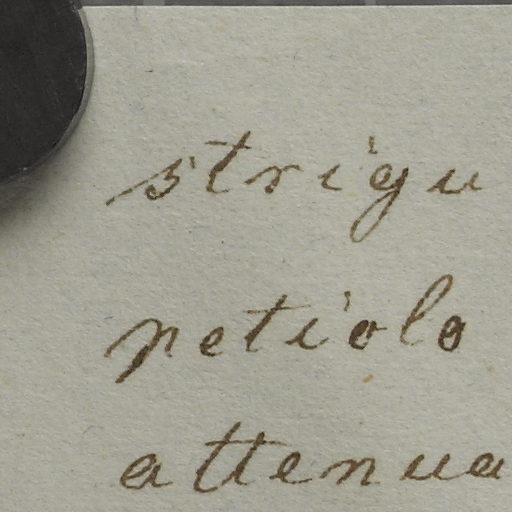 strigu
petiolo
attenua